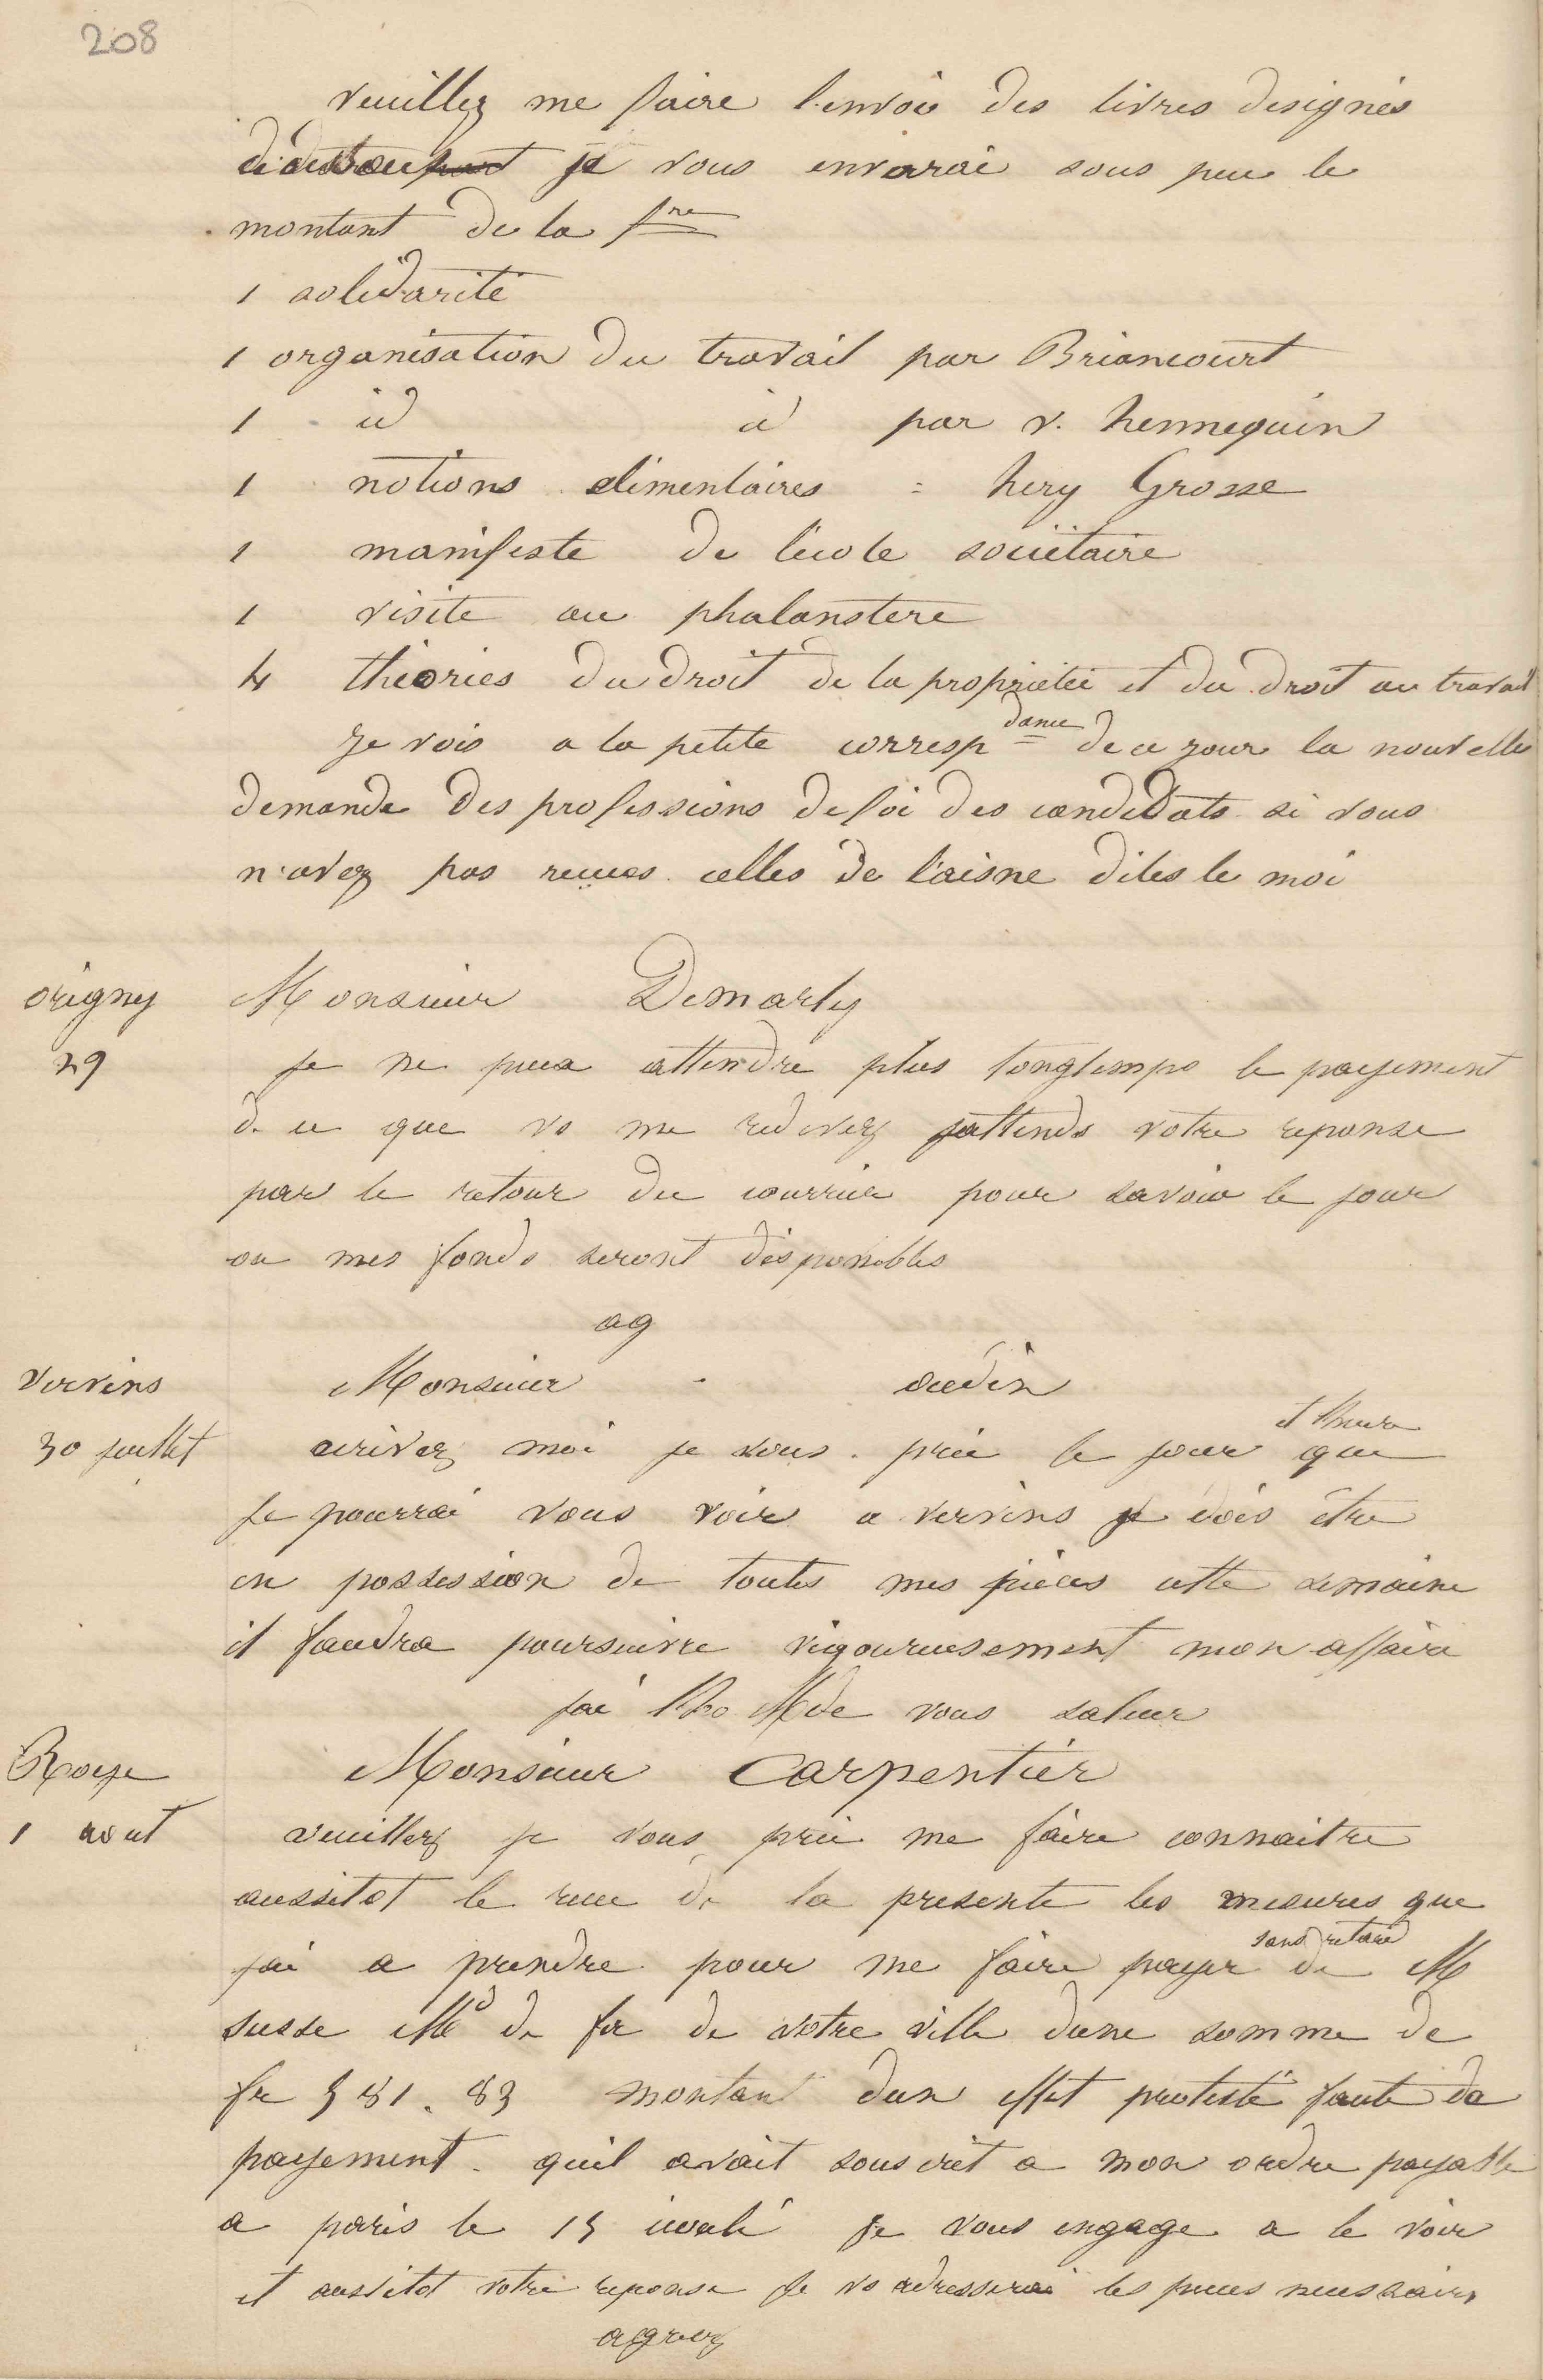 208
veuillez me faire l'envoi des livres designés
je vous enverai sous peu le
montant de la fre
1 solidarité
1 organisation du travail par Briancourt
1 id id par v. hennequin
1 notions elimentaires = hery Grosse
1 manifeste de l'école sociètaire
1 visite au phalanstere
4 théories du droit de la propriétée et du droit au travail
Je vois a la petite correspdance de ce jour la nouvelle
demande des professions de foi des candidats si vous
n'avez pas recues celles de l'aisne dites le moi
origny Monsieur Demarly
29 je ne peux attendre plus longtemps le payement
de ce que vs me redevez j'attends votre reponse
par le retour du courrier pour savoir le jour
ou mes fonds seront disponibles
ag
Vervins Monsieur oudin
30 juillet ecrivez moi je vous prie le jour et lheure que
je pourrai vous voir a vervins je dois être
en possession de toutes mes pièces cette semaine
il faudra poursuivre vigoureusement mon affaire
jai de vous saluer
Roye Monsieur Carpentier
1 aout veuillez je vous prie me faire connaitre
aussitot le recu de la presente les mesures que
jai a prendre pour me faire payer sans retard de M
susse Md de fer de votre ville dune somme de
fr 581. 83 montant dun effet protesté faute de
payement quil avait souscrit a mon ordre payable
a paris le 15 je vous engage a le voir
et aussitot votre reponse je vs adresserai les pieces necessaires
agreez